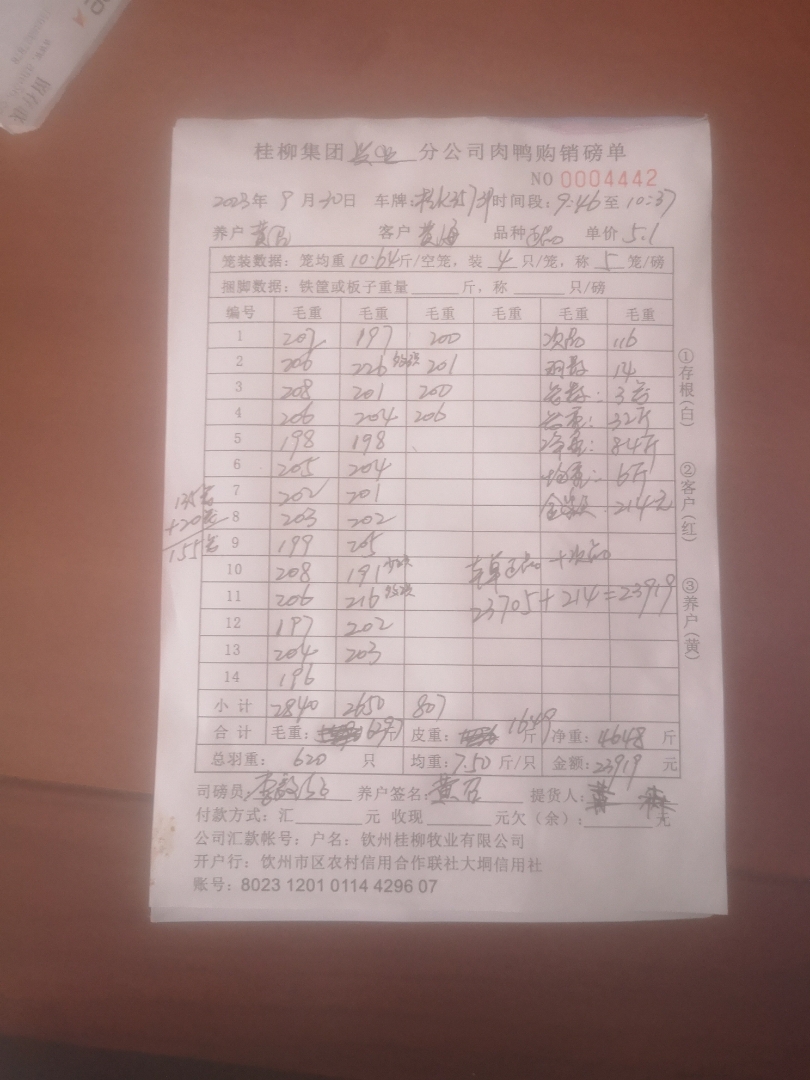 桂柳集团 兴业 分公司肉鸭购销磅单
NO 0004442
2023年 9 月 30日 车牌: 时间段: 9:46 至 10:37
养户 客户 黄海 品种 正品 单价 5.1
笼装数据: 笼均重 10.64 斤/空笼, 装 4 只/笼, 称 5 笼/磅
捆脚数据: 铁筐或板子重量 斤, 称 只/磅
编号 毛重 毛重 毛重 毛重 毛重 毛重
1 207 197 200 次品 116
2 206 226 201 羽数 14
3 208 201 200 3
4 206 204 206 32斤
5 198 198 净重: 84斤
6 205 204 均重: 6斤
7 202 201 金额: 214元
8 203 202
9 199 205
10 208 191 正品 + 次品
11 206 216 23705 + 214 = 23919
12 197 202
13 204 203
14 196
135
+20
155
小计 2840 2650 807
合计 毛重: 6297 皮重: 1649 斤 净重: 4648 斤
总羽重: 620 只 均重: 7.50 斤/只 金额: 23919 元
司磅员: 养户签名: 提货人:
付款方式: 汇 元 收现 元欠(余): 元
公司汇款帐号: 户名: 钦州桂柳牧业有限公司
开户行: 钦州市区农村信用合作联社大垌信用社
账号: 8023 1201 0114 4296 07
①存根(白)
②客户(红)
③养户(黄)